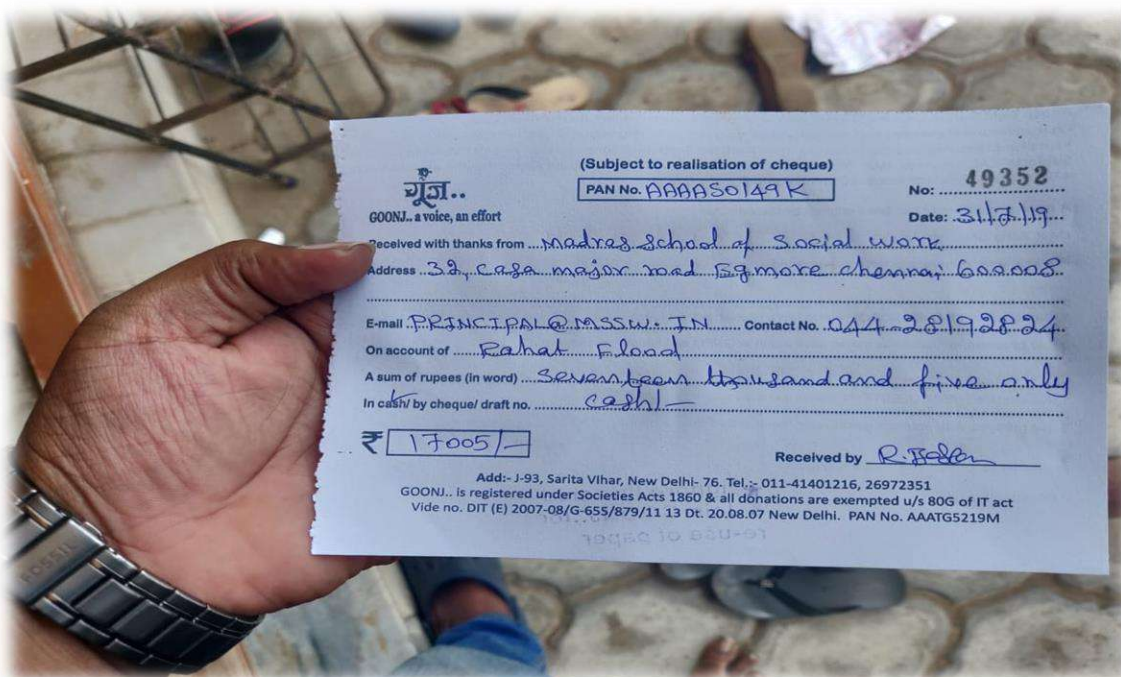 (Subject to realisation of cheque)
गूंज..
GOONJ.. a voice, an effort
PAN No. AAAAS0149K
No: 49352
Date: 31/7/19
Received with thanks from Madras School of Social work
Address 32, casa major road Egmore chennai 600008
E-mail PRINCIPAL@MSSW.IN Contact No. 044-28192824
On account of Rahat Flood
A sum of rupees (in word) Seventeen thousand and five only
In cash/ by cheque/ draft no. cash/-
₹ 17005/-
Received by R.
Add:- J-93, Sarita Vihar, New Delhi- 76. Tel.:- 011-41401216, 26972351
GOONJ.. is registered under Societies Acts 1860 & all donations are exempted u/s 80G of IT act
Vide no. DIT (E) 2007-08/G-655/879/11 13 Dt. 20.08.07 New Delhi. PAN No. AAATG5219M
re-use of paper
FOSSIL